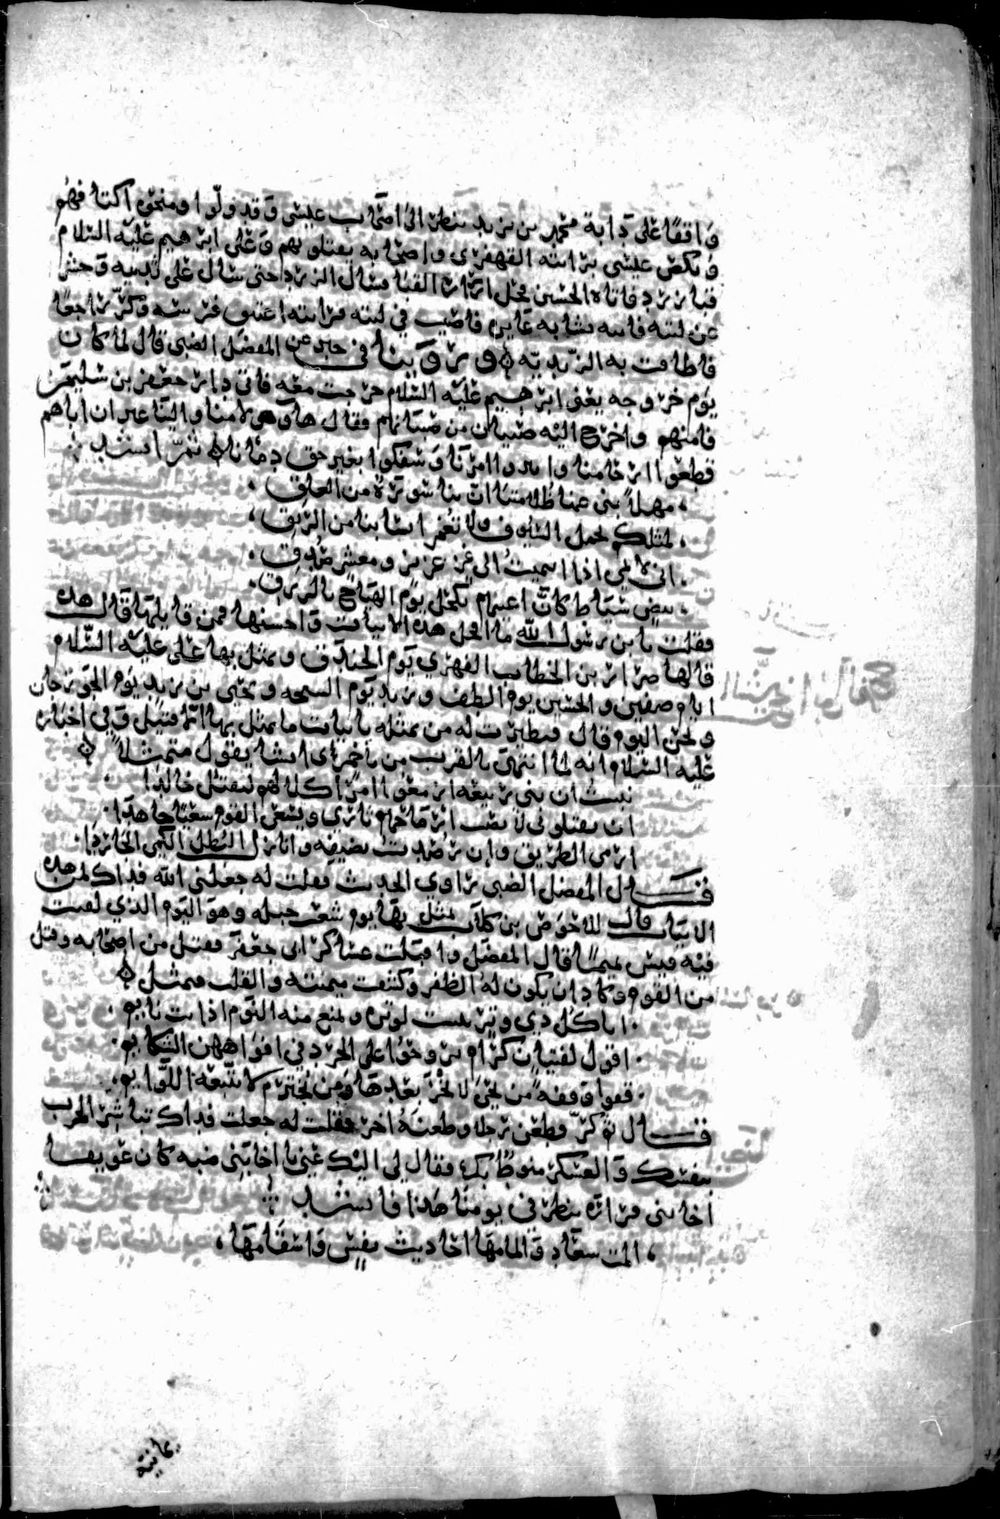 واقفا على دابة محمد بن يزيد ينظر الى اصحاب عيسى وقد ولوا ومنحوهم اكتافهم
ونكص عيسى برايته القهقرى واصحابه يقتلونهم وعلى ابرهيم عليه السلام
قباء زرد فاتاه الحسن فحل ازرار القبا فشال الزرد حتى سال على ثدييه وحسر
عن لبته فاتته نشابه عاير فاصيب في لبته فرايته اعتنق فرسه وكر راجعا
فاطافت به الزيديه وروينا في خبر عن المفضل الضبي قال لما كان
يوم خروجه يعني ابرهيم عليه السلام خرجت معه فاتى دار جعفر بن سليمن
فامنهم واخرج اليه صبيان من صبيانهم فقال هاولاء منا والينا غير ان اباهم
قطعوا ارحامنا وابتزوا امرنا وسفكوا بغير حق دمانا ثم انشد
مهلا بني عمنا ظلامتنا ان بنا سورة من العلق
لمثلكم نحمل السيوف ولا تغمز احسابنا من الرقق
اني لانمي اذا انتميت الى عز عزيز ومعشر صدق
بيض سباط كان اعينهم تكحل يوم الهياج بالزرق
فقلت يا بن رسول الله ما افحل هذه الابيات واحسنها فمن قايلها قال هذه
قالها ضرار بن الخطاب الفهري يوم الخندق وتمثل بها علي عليه السلام
ايام صفين والحسين يوم الطف وزيد يوم السبخه ويحيى بن زيد يوم الجوزجان
ونحن اليوم قال فتطيرت له من تمثله بابيات ما تمثل بها الا قتيل وفي اخباره
عليه السلام انه لما انتهى بالقرب من باخمرى انشا يقول متمثلا
نبئت ان بني ربيعه ازمعوا امرا خلالهم ليقتل خالدا
ان يقتلوني لا تصب ارماحهم ثاري ويسعى القوم سعيا جاهدا
ارمي الطريق وان رصدت بضيقه وانازل البطل الكمي الحاردا
فقال المفضل الضبي راوي الحديث فقلت له جعلني الله فداك لمن هذه
الابيات قال للاحوص بن كلاب تمثل بها يوم شعب جبله وهو اليوم الذي لقيت
فيه قيس تميما قال المفضل واقبلت عساكر ابي جعفر فقتل من اصحابه وقتل
من القوم وكاد ان يكون له الظفر وكشفت ميمنته والقلب فتمثل
ايا كل ذي وتر يبيت لوتره ويمنع منه النوم اذ انت نايم
اقول لفتيان كرام تروحوا على الجرد في افواههن الشكايم
قفوا وقفه من يحيى لا يخز بعدها ومن يخترم لا تتبعه اللوايم
فقال ثم كر فطعن رجلا وطعنه اخر فقلت له جعلت فداك تباشر الحرب
بنفسك والعسكر منوط بك فقال لي اليك عني يا اخا بني ضبه كان عويفا
اخا بني فزاره ينظر في يومنا هذا فانشد
المت سعاد والمامها احاديث نفس واسقامها
يمانية